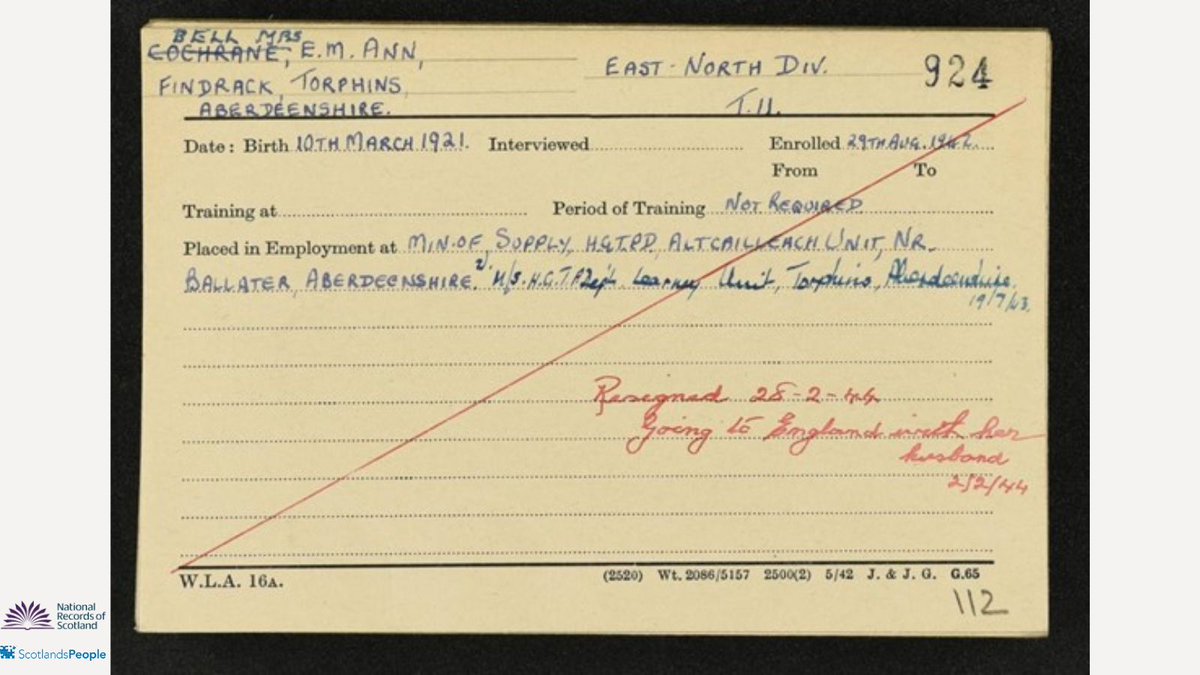 BELL MRS
COCHRANE, E.M. ANN,
FINDRACK, TORPHINS,
ABERDEENSHIRE.
EAST-NORTH DIV.
T.U.
924
Date: Birth 10TH MARCH 1921. Interviewed Enrolled 29TH AUG. 1942.
From To
Training at Period of Training NOT REQUIRED
Placed in Employment at MIN. OF SUPPLY, H.G.T.P.D. ALTCAILLEACH UNIT, NR.
BALLATER, ABERDEENSHIRE. M/S. H.G.T.P. Dept. Learney Unit, Torphins, Aberdeenshire.
19/7/43.
Resigned 28-2-44
Going to England with her
husband
2/2/44
W.L.A. 16A.
(2520) Wt. 2086/5157 2500(2) 5/42 J. & J. G. G.65
112
National
Records of
Scotland
ScotlandsPeople